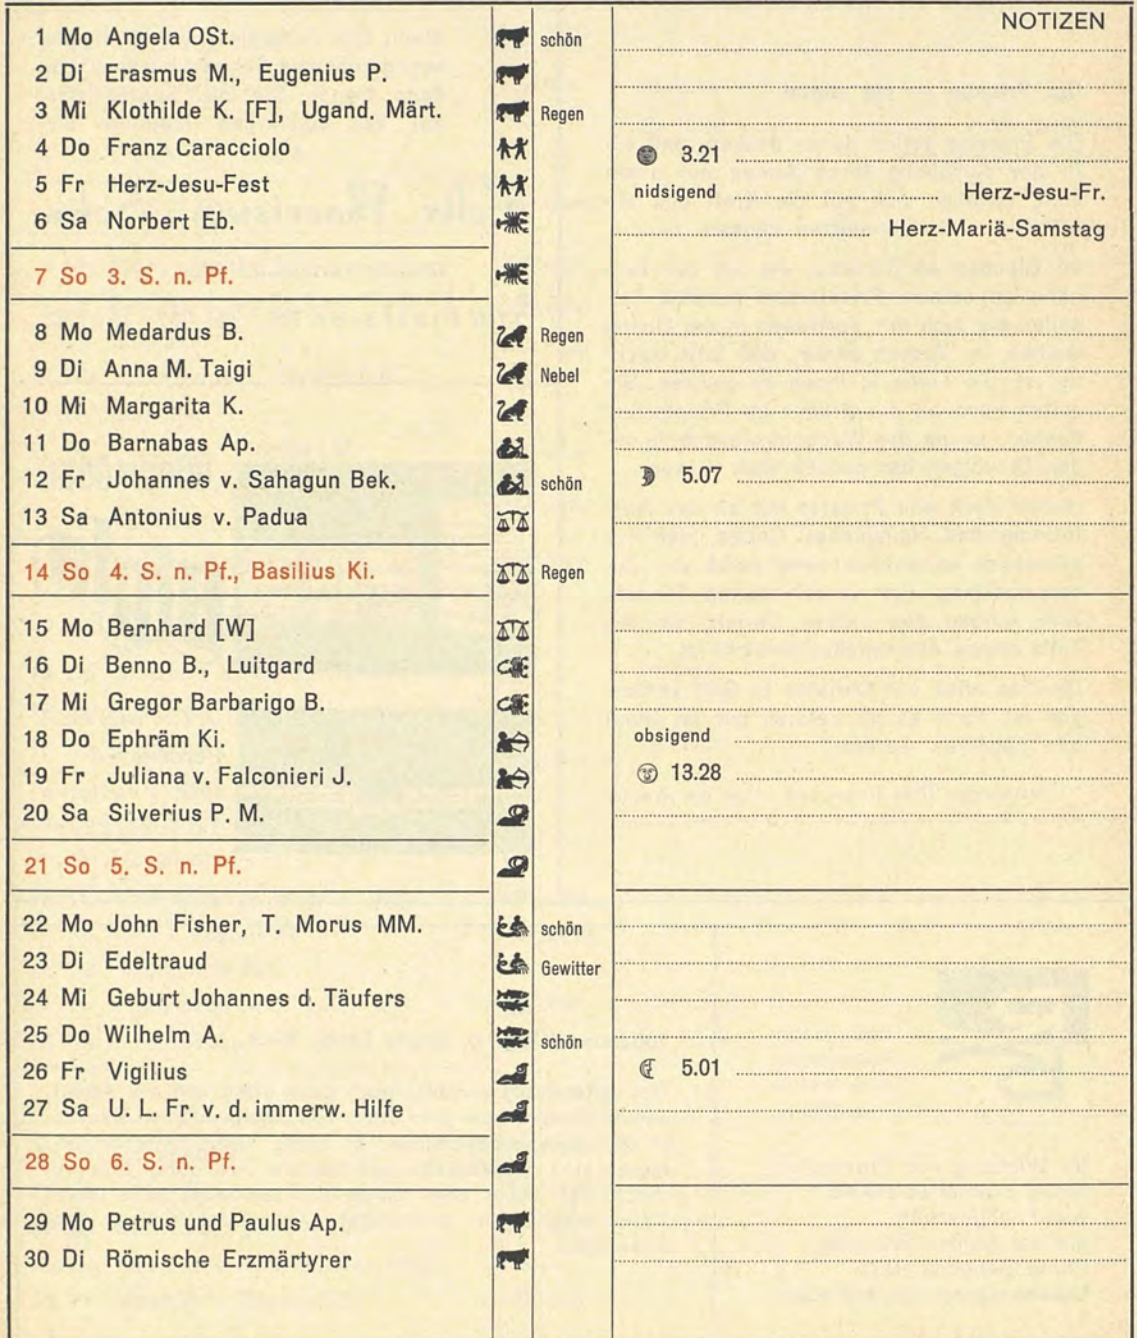 NOTIZEN
1 Mo Angela OSt. schön
2 Di Erasmus M., Eugenius P.
3 Mi Klothilde K. [F], Ugand. Märt. Regen
4 Do Franz Caracciolo 3.21
5 Fr Herz-Jesu-Fest nidsigend Herz-Jesu-Fr.
6 Sa Norbert Eb. Herz-Mariä-Samstag
7 So 3. S. n. Pf.
8 Mo Medardus B. Regen
9 Di Anna M. Taigi Nebel
10 Mi Margarita K.
11 Do Barnabas Ap.
12 Fr Johannes v. Sahagun Bek. schön 5.07
13 Sa Antonius v. Padua
14 So 4. S. n. Pf., Basilius Ki. Regen
15 Mo Bernhard [W]
16 Di Benno B., Luitgard
17 Mi Gregor Barbarigo B.
18 Do Ephräm Ki. obsigend
19 Fr Juliana v. Falconieri J. 13.28
20 Sa Silverius P. M.
21 So 5. S. n. Pf.
22 Mo John Fisher, T. Morus MM. schön
23 Di Edeltraud Gewitter
24 Mi Geburt Johannes d. Täufers
25 Do Wilhelm A. schön
26 Fr Vigilius 5.01
27 Sa U. L. Fr. v. d. immerw. Hilfe
28 So 6. S. n. Pf.
29 Mo Petrus und Paulus Ap.
30 Di Römische Erzmärtyrer